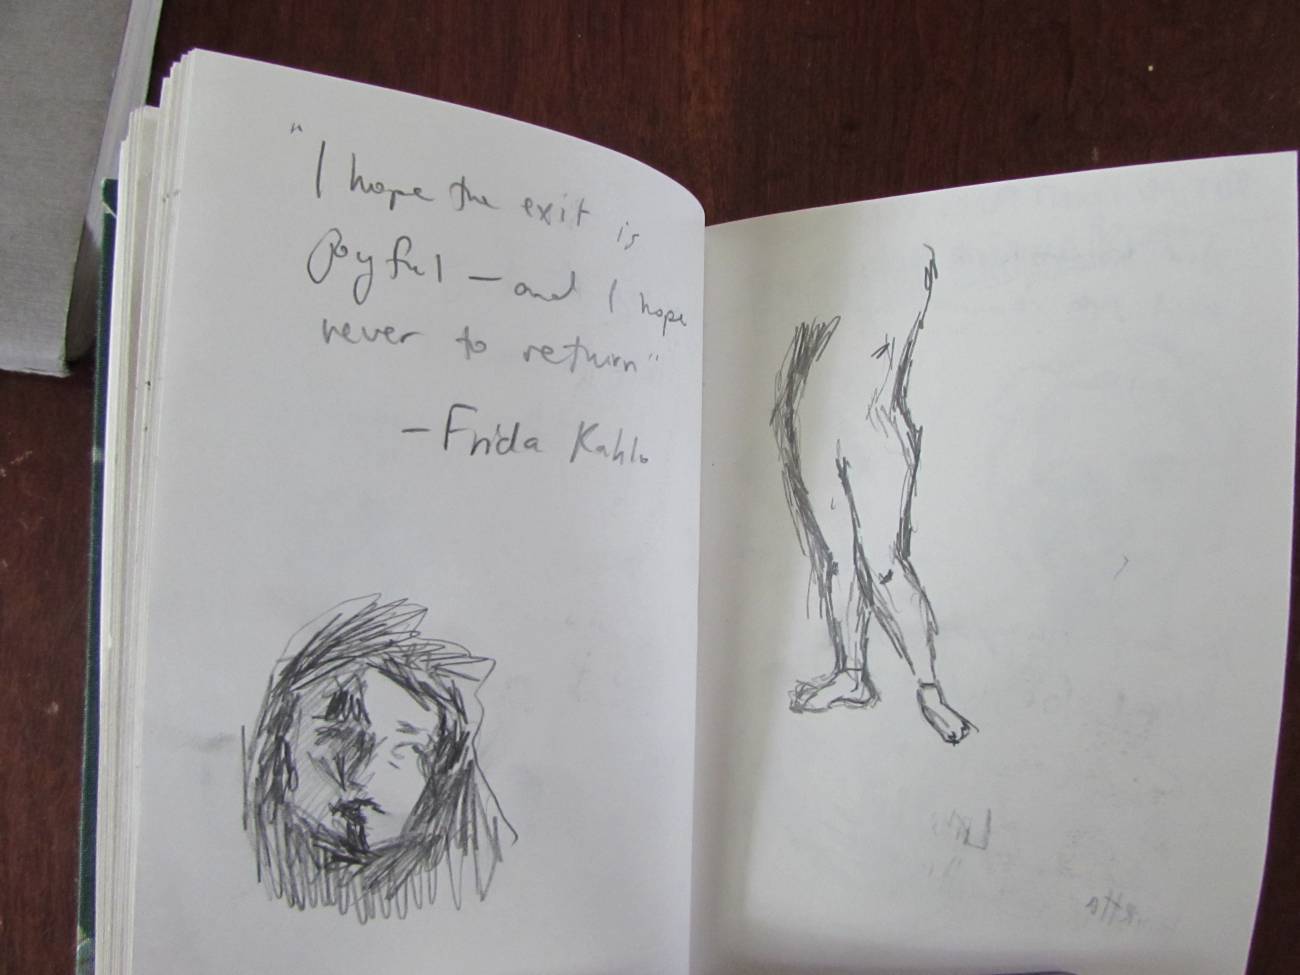 "I hope the exit is
joyful – and I hope
never to return"
– Frida Kahlo